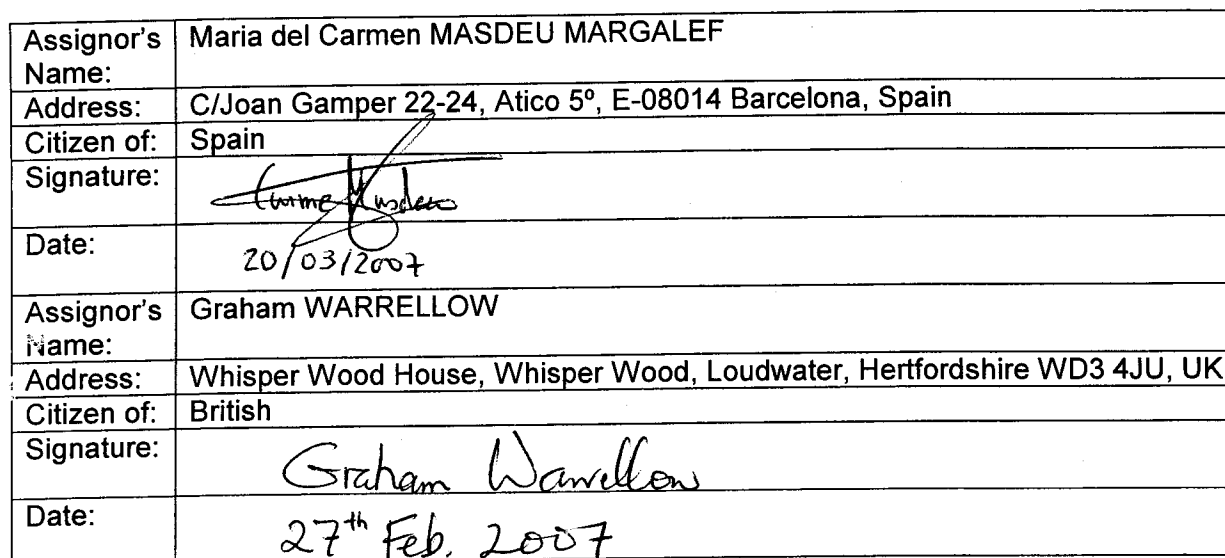 Assignor's Name: Maria del Carmen MASDEU MARGALEF
Address: C/Joan Gamper 22-24, Atico 5º, E-08014 Barcelona, Spain
Citizen of: Spain
Signature: Carme Masdeu
Date: 20/03/2007
Assignor's Name: Graham WARRELLOW
Address: Whisper Wood House, Whisper Wood, Loudwater, Hertfordshire WD3 4JU, UK
Citizen of: British
Signature: Graham Warrellow
Date: 27th Feb. 2007